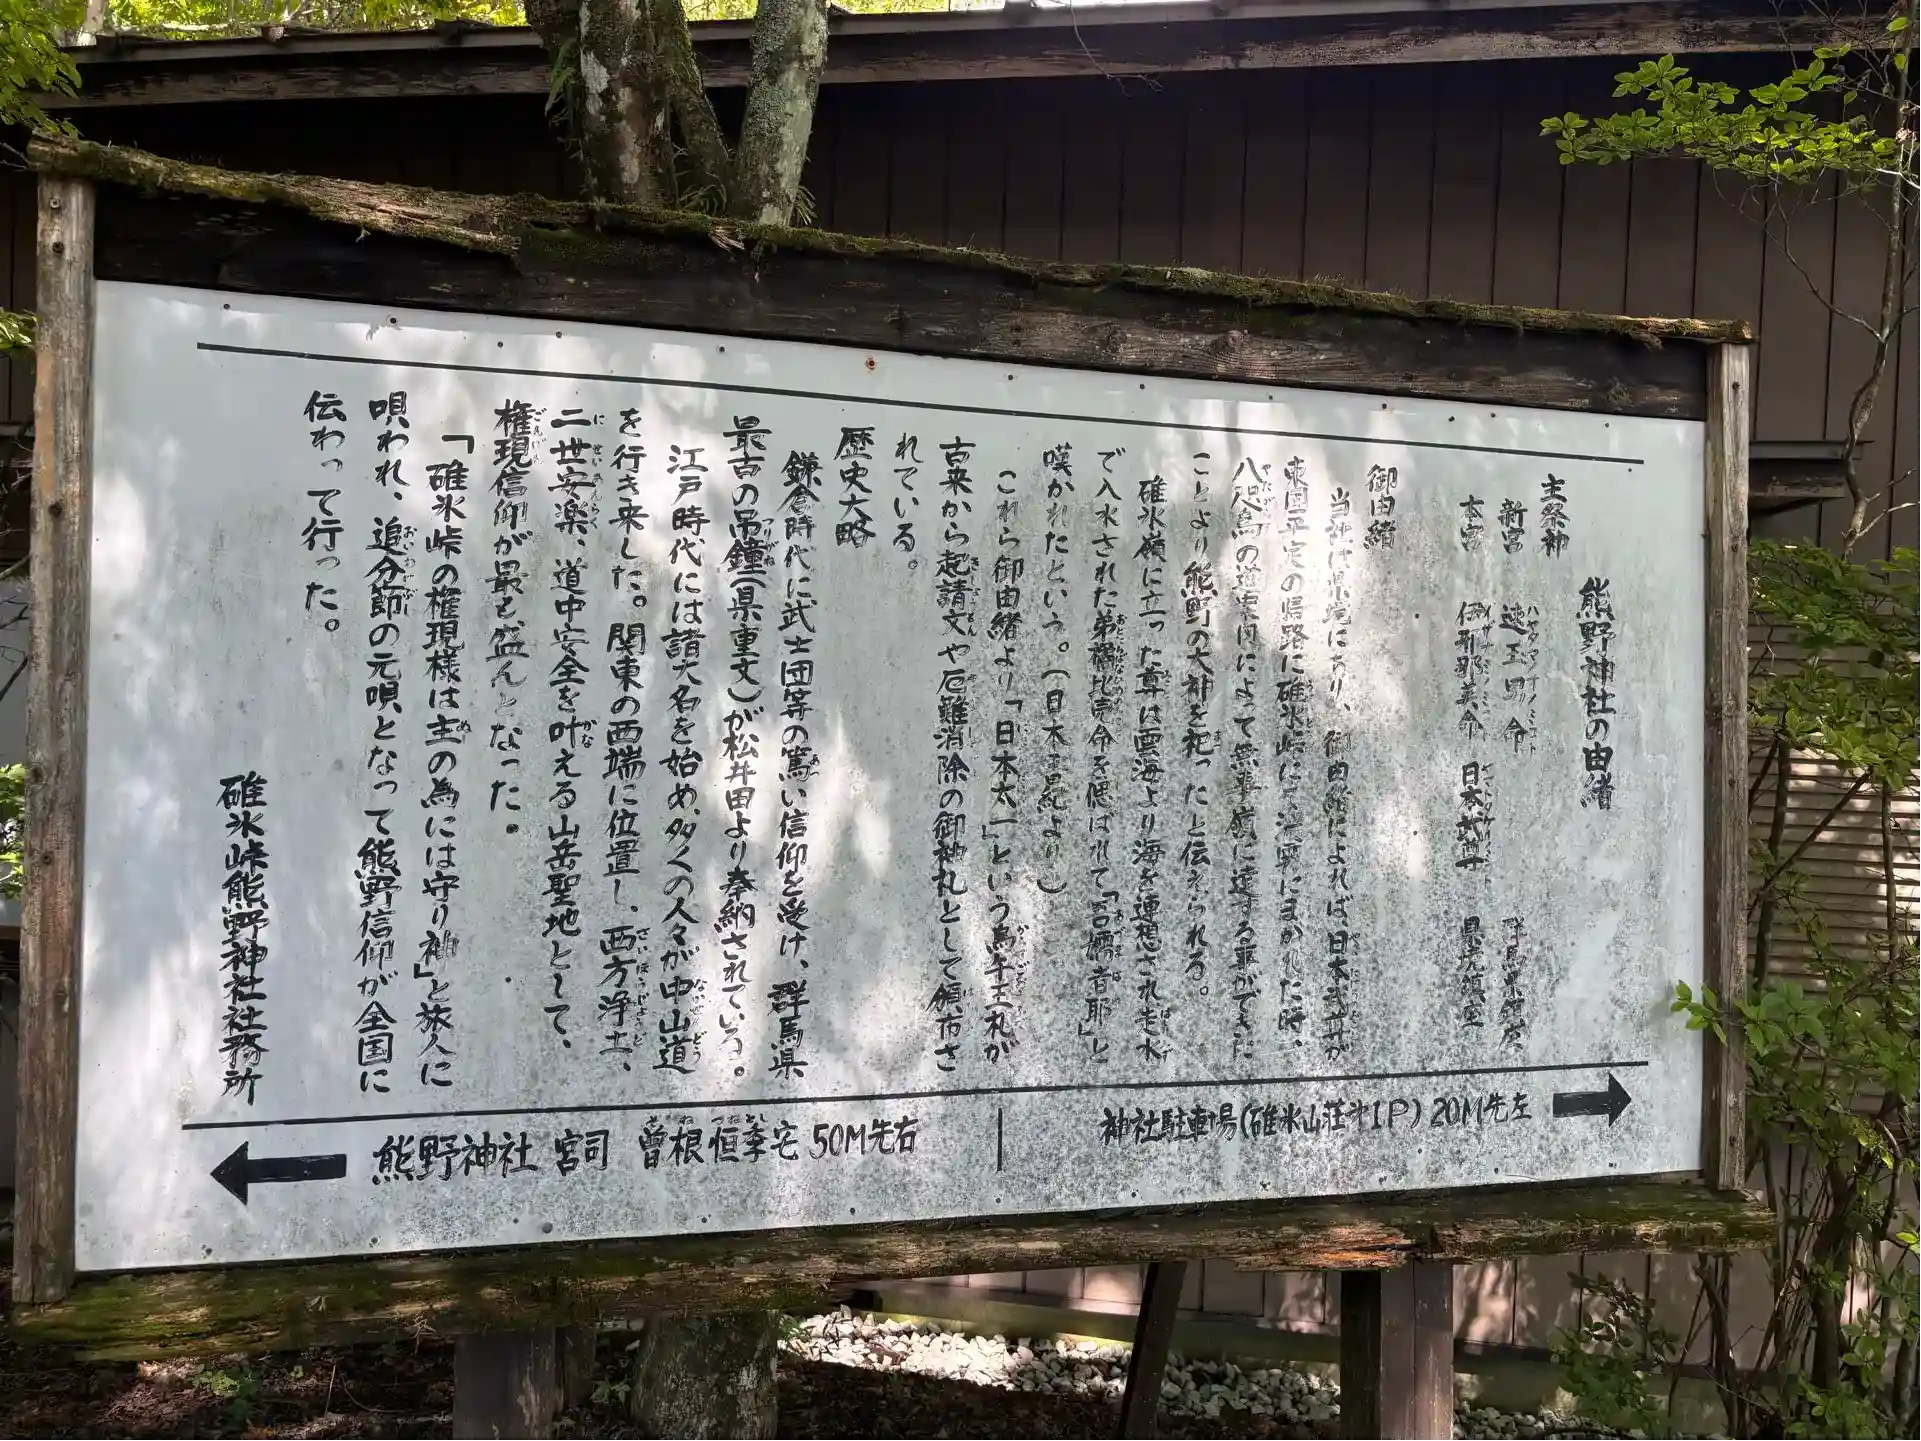 熊野神社の由緒
主祭神
新宮 速玉男命 群馬県鎮座
本宮 伊邪那美命 日本武尊 県境鎮座
御由緒
当社は県境にあり、御由緒によれば、日本武尊が
東国平定の帰路に碓氷峠にて濃霧にまかれた時、
八咫烏の道案内によって無事嶺に達する事ができた
ことより熊野の大神を祀ったと伝えられる。
碓氷嶺に立った尊は雲海より海を連想され走水
で入水された弟橘比売命を偲ばれて「吾嬬者耶」と
嘆かれたという。(日本書紀より)
これら御由緒より「日本太一」という烏牛王札が
古来から起請文や厄難消除の御神札として頒布さ
れている。
歴史大略
鎌倉時代に武士団等の篤い信仰を受け、群馬県
最古の吊鐘(県重文)が松井田より奉納されている。
江戸時代には諸大名を始め、多くの人々が中山道
を行き来した。関東の西端に位置し、西方浄土、
二世安楽、道中安全を叶える山岳聖地として、
権現信仰が最も盛んとなった。
「碓氷峠の権現様は主の為には守り神」と旅人に
唄われ、追分節の元唄となって熊野信仰が全国に
伝わって行った。
碓氷峠熊野神社社務所
熊野神社 宮司 曽根恒季宅 50M先右
神社駐車場(碓氷山荘氷1P) 20M先左